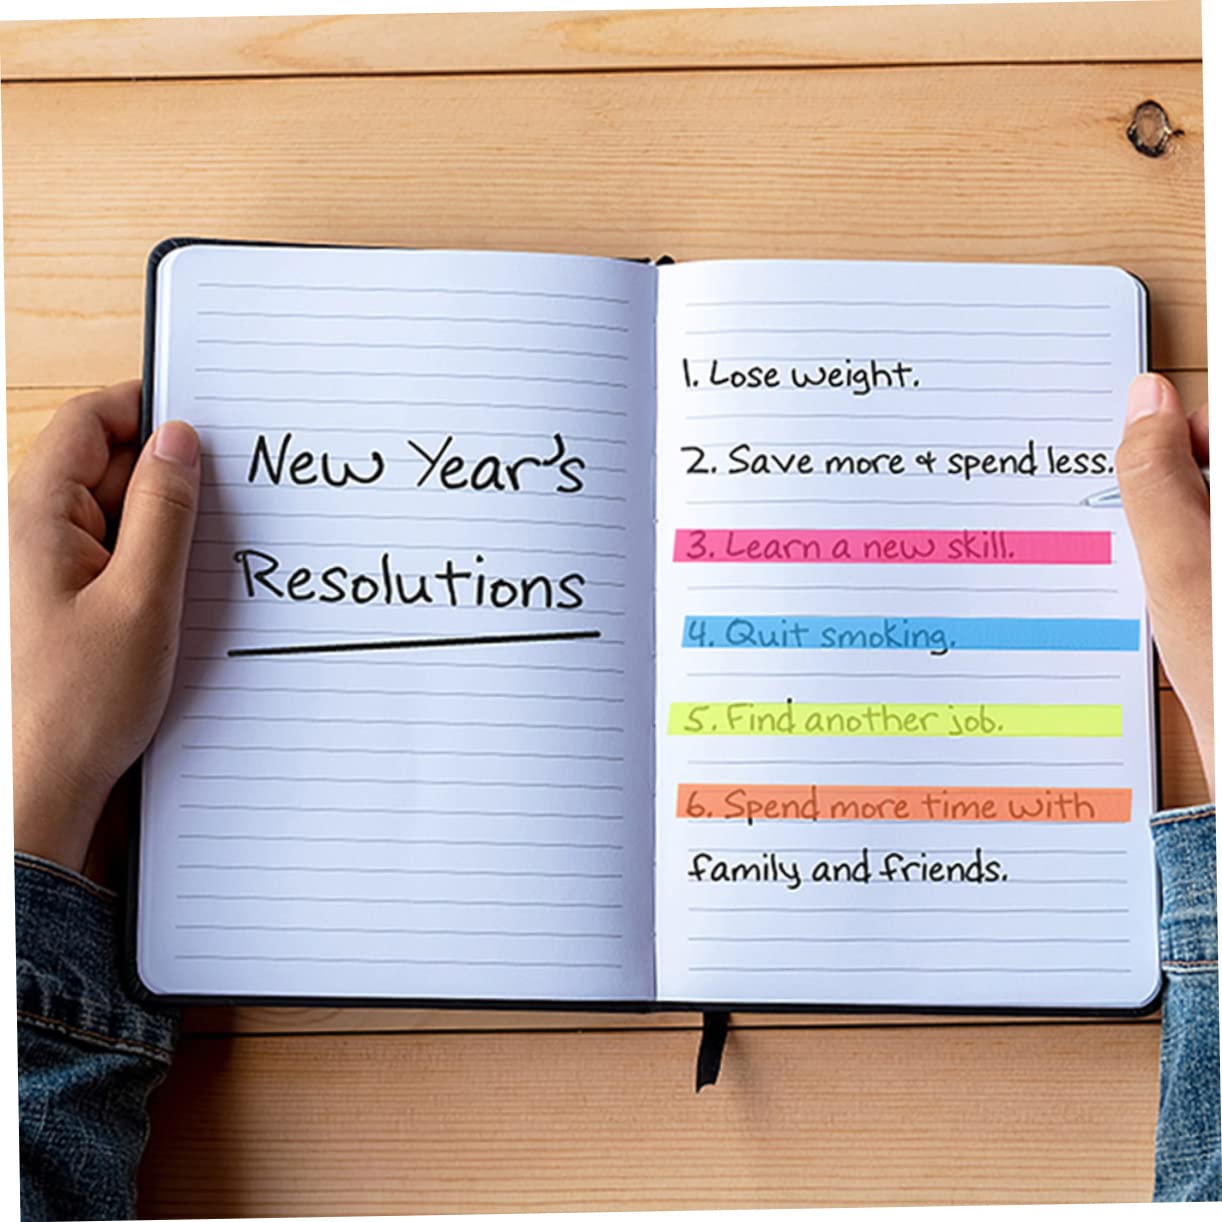 New Year's
Resolutions
1. Lose weight.
2. Save more & spend less.
3. Learn a new skill.
4. Quit smoking.
5. Find another job.
6. Spend more time with
family and friends.